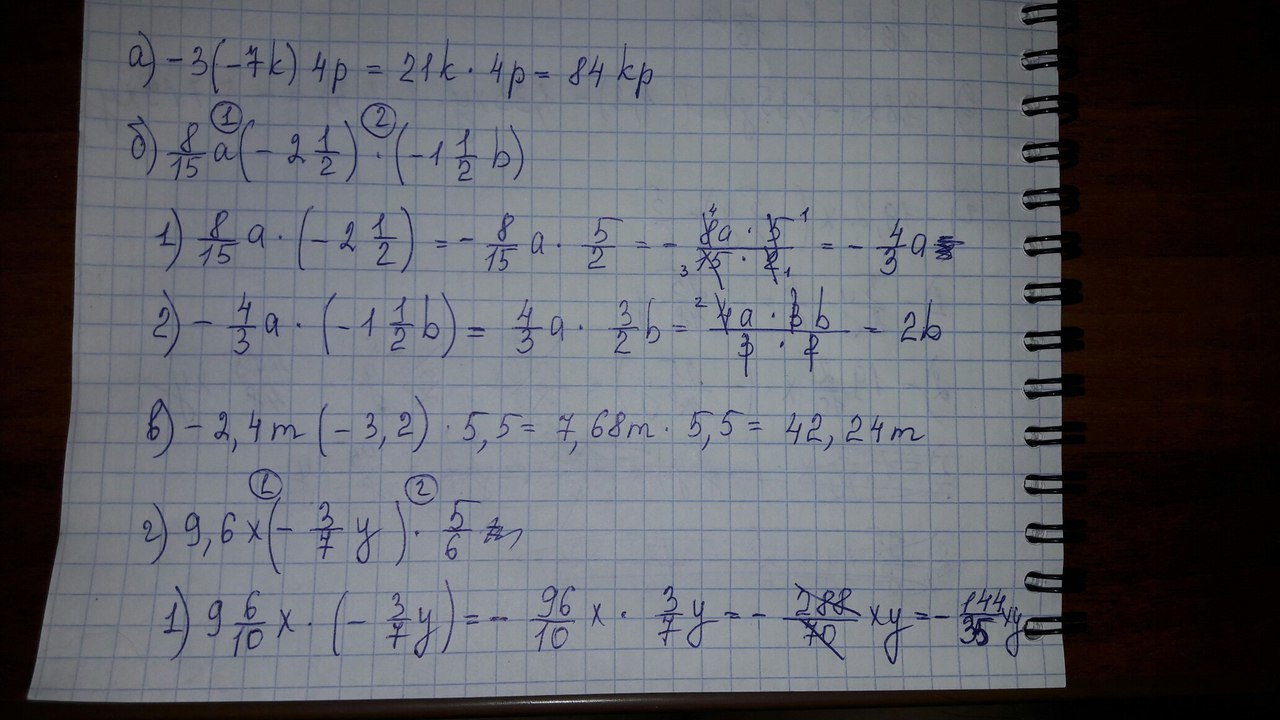 а) -3(-7k) 4p = 21k · 4p = 84 kp
① ②
б) 8/15 a (-2 1/2) · (-1 1/2 b)
1) 8/15 a · (-2 1/2) = - 8/15 a · 5/2 = - 8a · 5 / 15 · 2 = - 4/3 a
2) - 4/3 a · (-1 1/2 b) = 4/3 a · 3/2 b = 4a · 3 b / 3 · 2 = 2b
в) -2,4m (-3,2) · 5,5 = 7,68m · 5,5 = 42,24m
① ②
г) 9,6 x (- 3/7 y) · 5/6
1) 9 6/10 x · (- 3/7 y) = - 96/10 x · 3/7 y = - 288/70 xy = - 144/35 xy